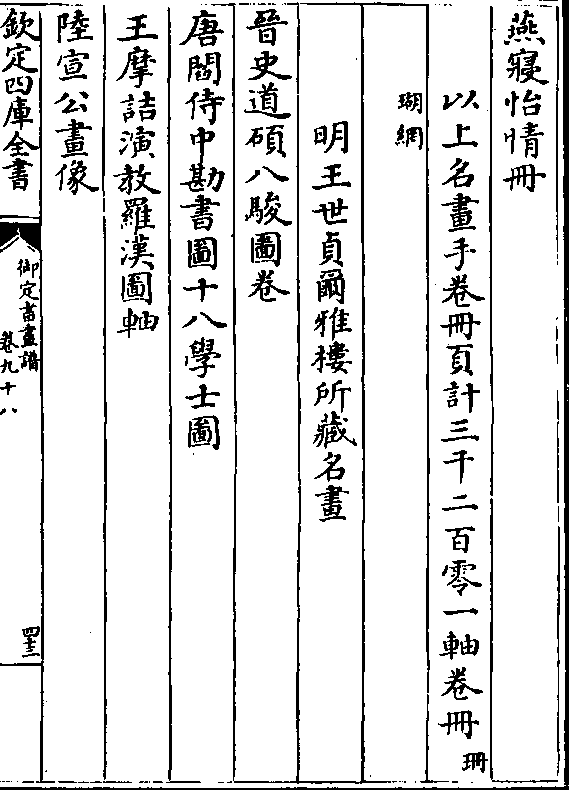 燕寢怡情冊
以上名畫手卷冊頁計三千二百零一軸卷冊珊
瑚網
明王世貞爾雅樓所藏名畫
晉史道碩八駿圖卷
唐閻侍中勘書圖十八學士圖
王摩詰演教羅漢圖軸
陸宣公畫像
欽定四庫全書
御定書畫譜
卷九十八
四十三